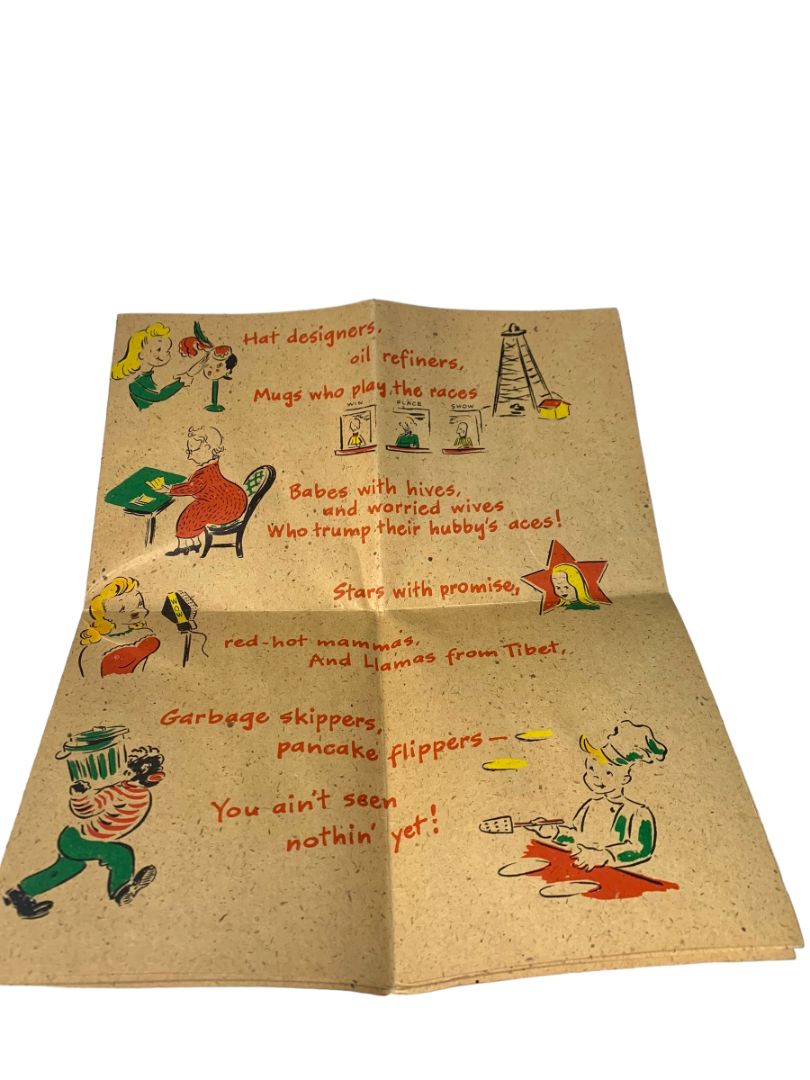 Hat designers,
oil refiners,
Mugs who play the races
WIN PLACE SHOW
Babes with hives,
and worried wives
Who trump their hubby's aces!
Stars with promise,
WOW
red-hot mammas,
And Llamas from Tibet,
Garbage skippers,
pancake flippers—
You ain't seen
nothin' yet!